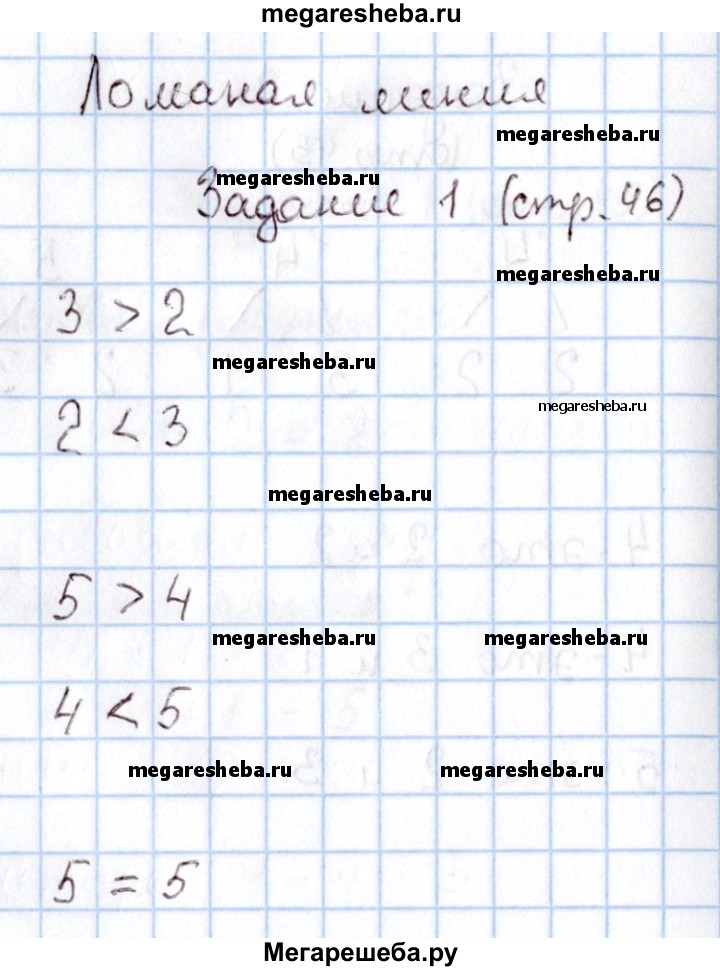 megaresheba.ru
Ломаная линия
megaresheba.ru
megaresheba.ru
Задание 1 (стр. 46)
megaresheba.ru
3 > 2
megaresheba.ru
megaresheba.ru
2 < 3
megaresheba.ru
5 > 4
megaresheba.ru megaresheba.ru
4 < 5
megaresheba.ru megaresheba.ru
5 = 5
Мегарешеба.ру